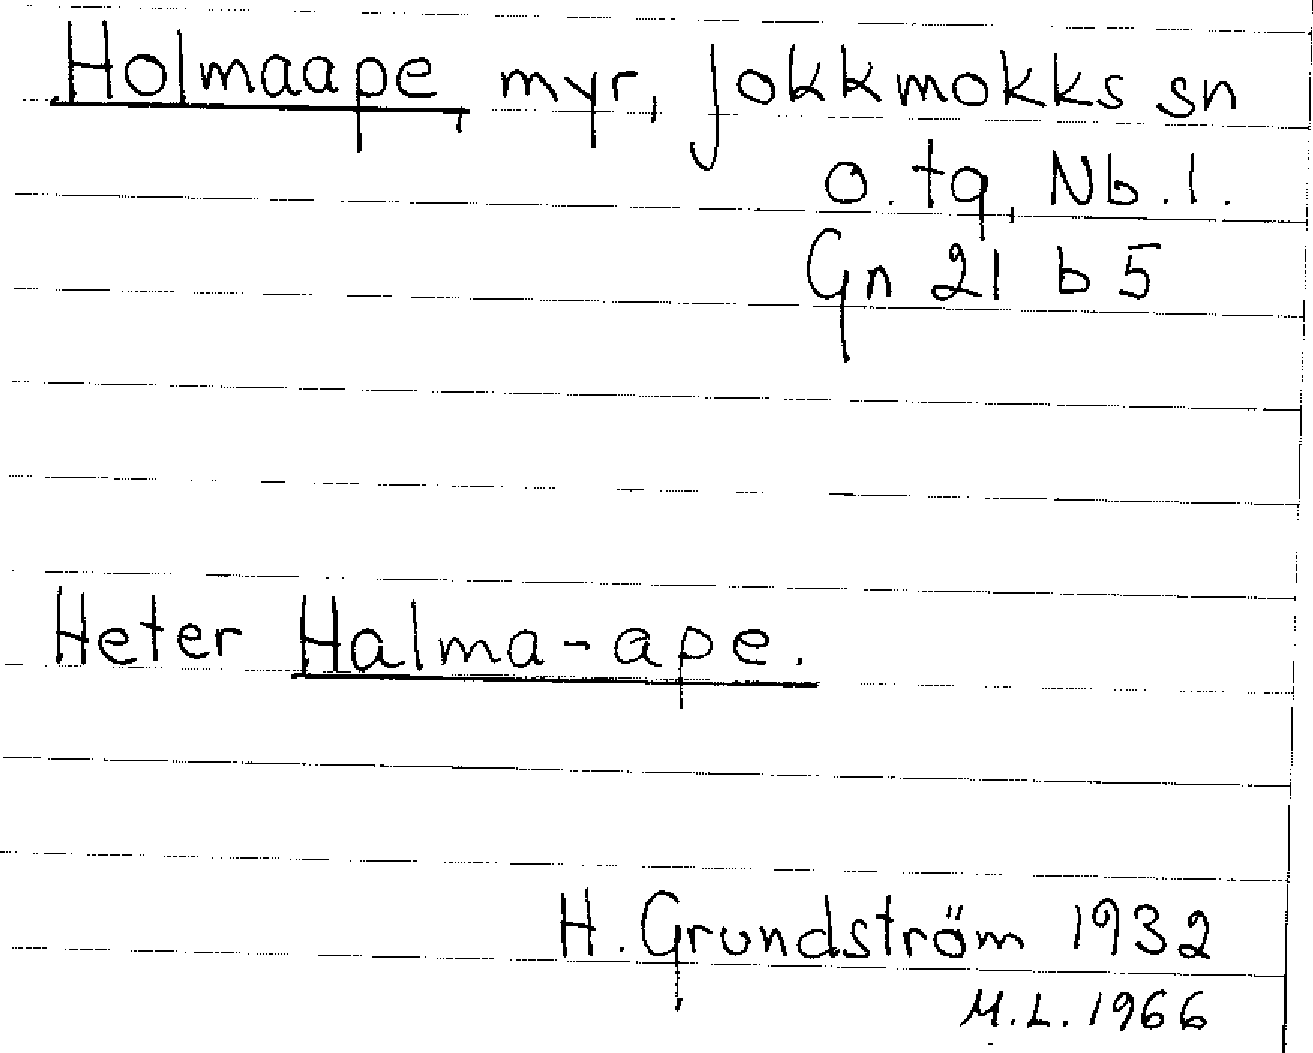 Holmaape, myr, Jokkmokks sn
o. tg, Nb. l.
Gn 21 b 5
Heter Halma-ape.
H. Grundström 1932
M.L. 1966